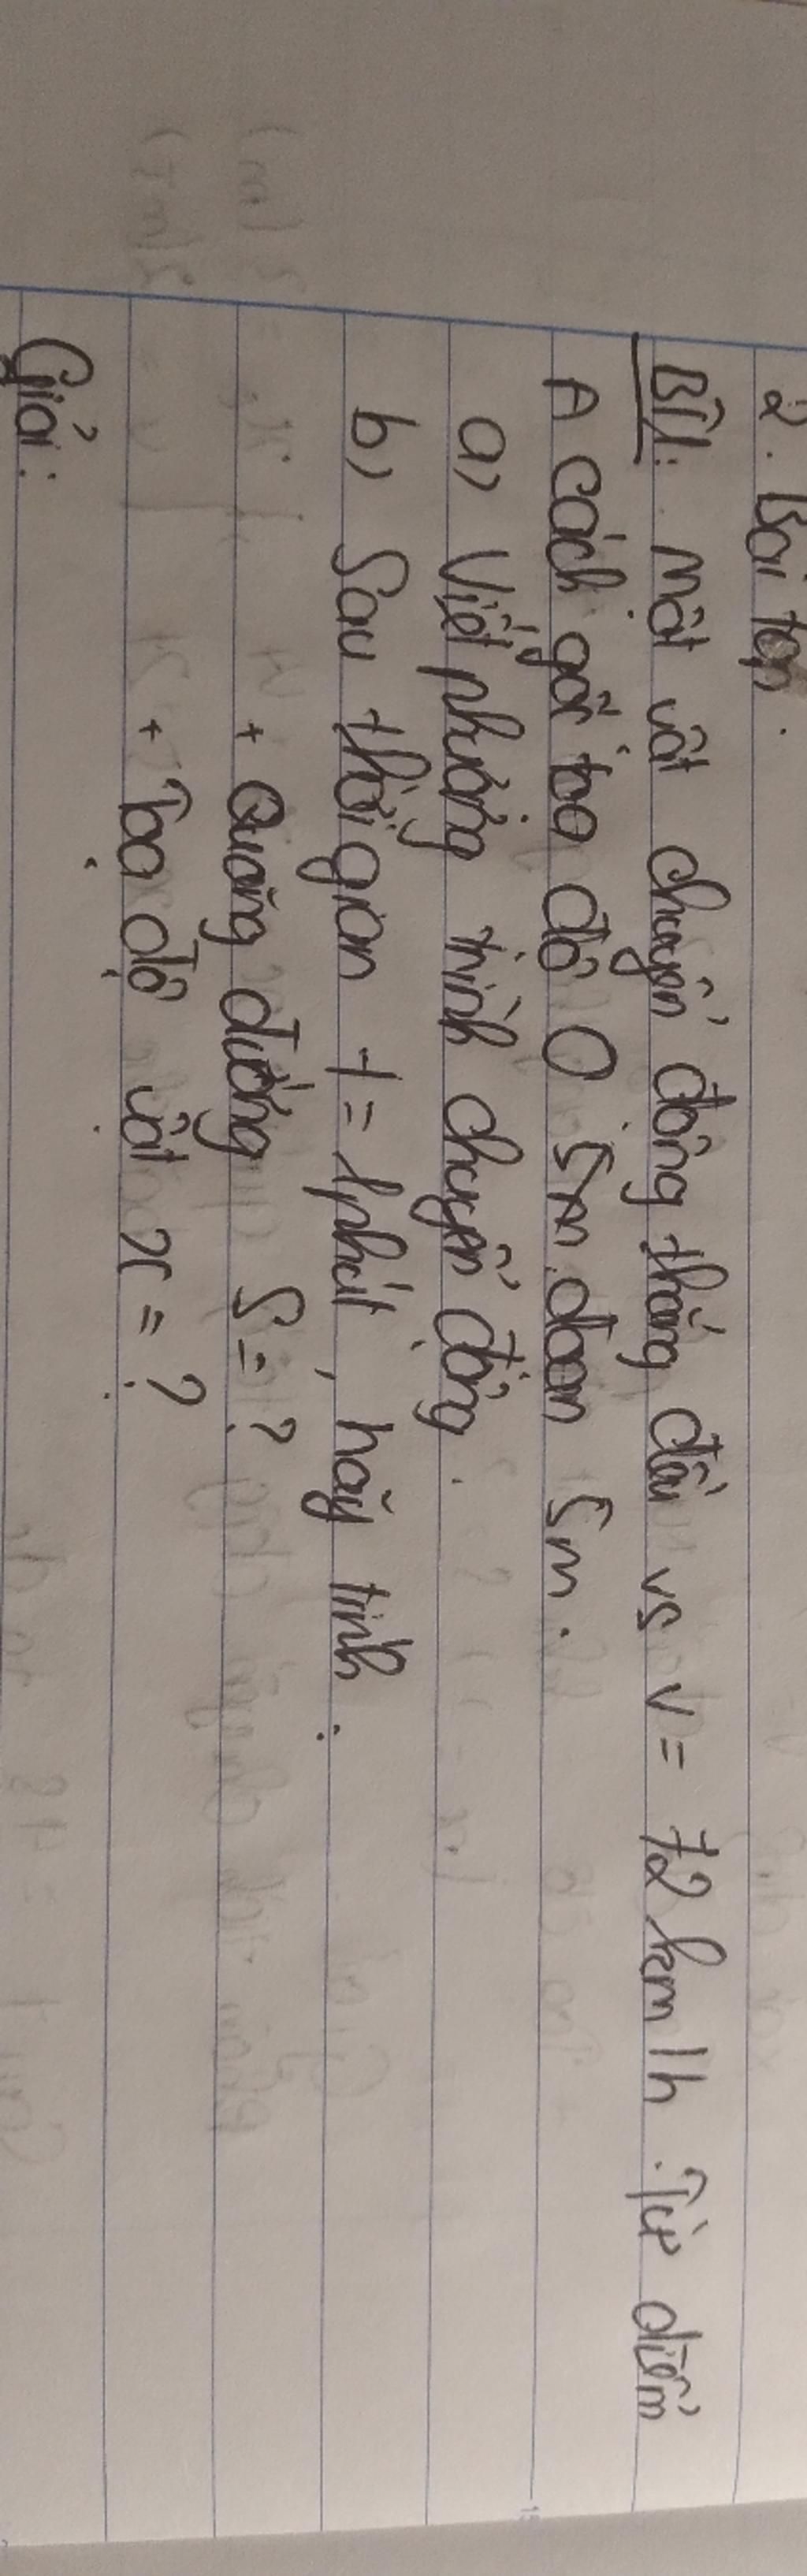 2. Bài tập.
BT1: Một vật chuyển động thẳng đều vs v = 72 km/h. Từ điểm
A cách gốc toạ độ O 5m đoạn 5m.
a) Viết phương trình chuyển động.
b) Sau thời gian t = 1phút, hãy tính.
+ Quãng đường S = ?
+ Toạ độ vật x = ?
Giải: